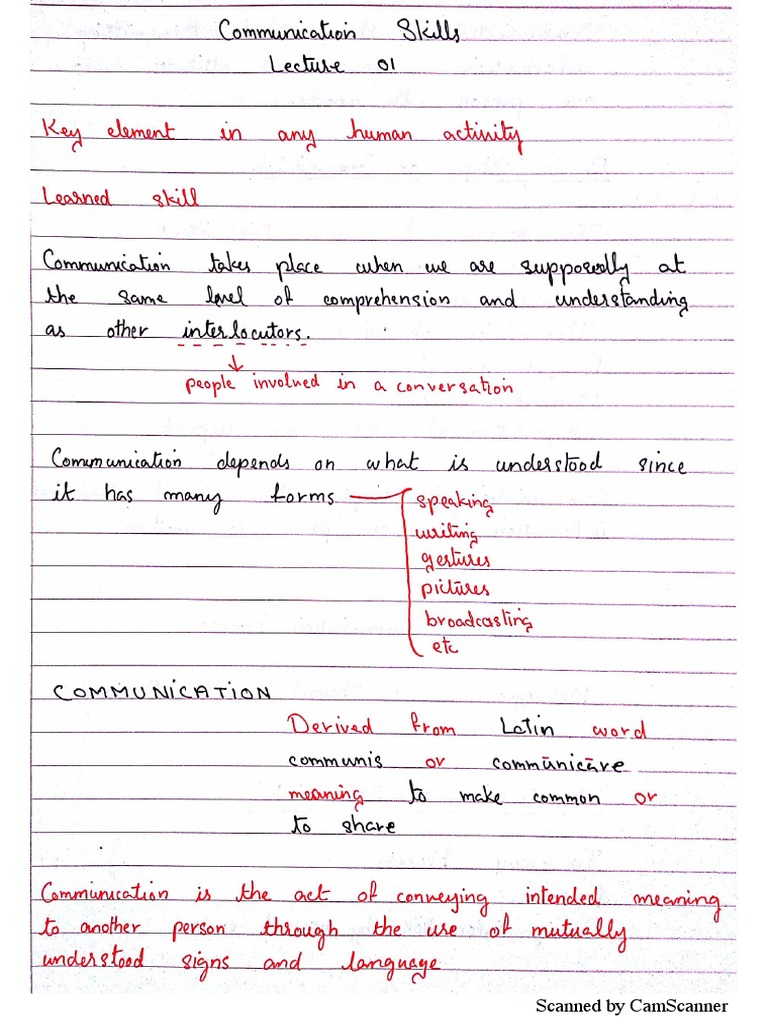 Communication Skills
Lecture 01
Key element in any human activity
Learned skill
Communication takes place when we are supposedly at
the same level of comprehension and understanding
as other interlocutors.
people involved in a conversation
Communication depends on what is understood since
it has many forms
speaking
writing
gestures
pictures
broadcasting
etc
COMMUNICATION
Derived from Latin word
communis or commūnicāre
meaning to make common or
to share
Communication is the act of conveying intended meaning
to another person through the use of mutually
understood signs and language
Scanned by CamScanner